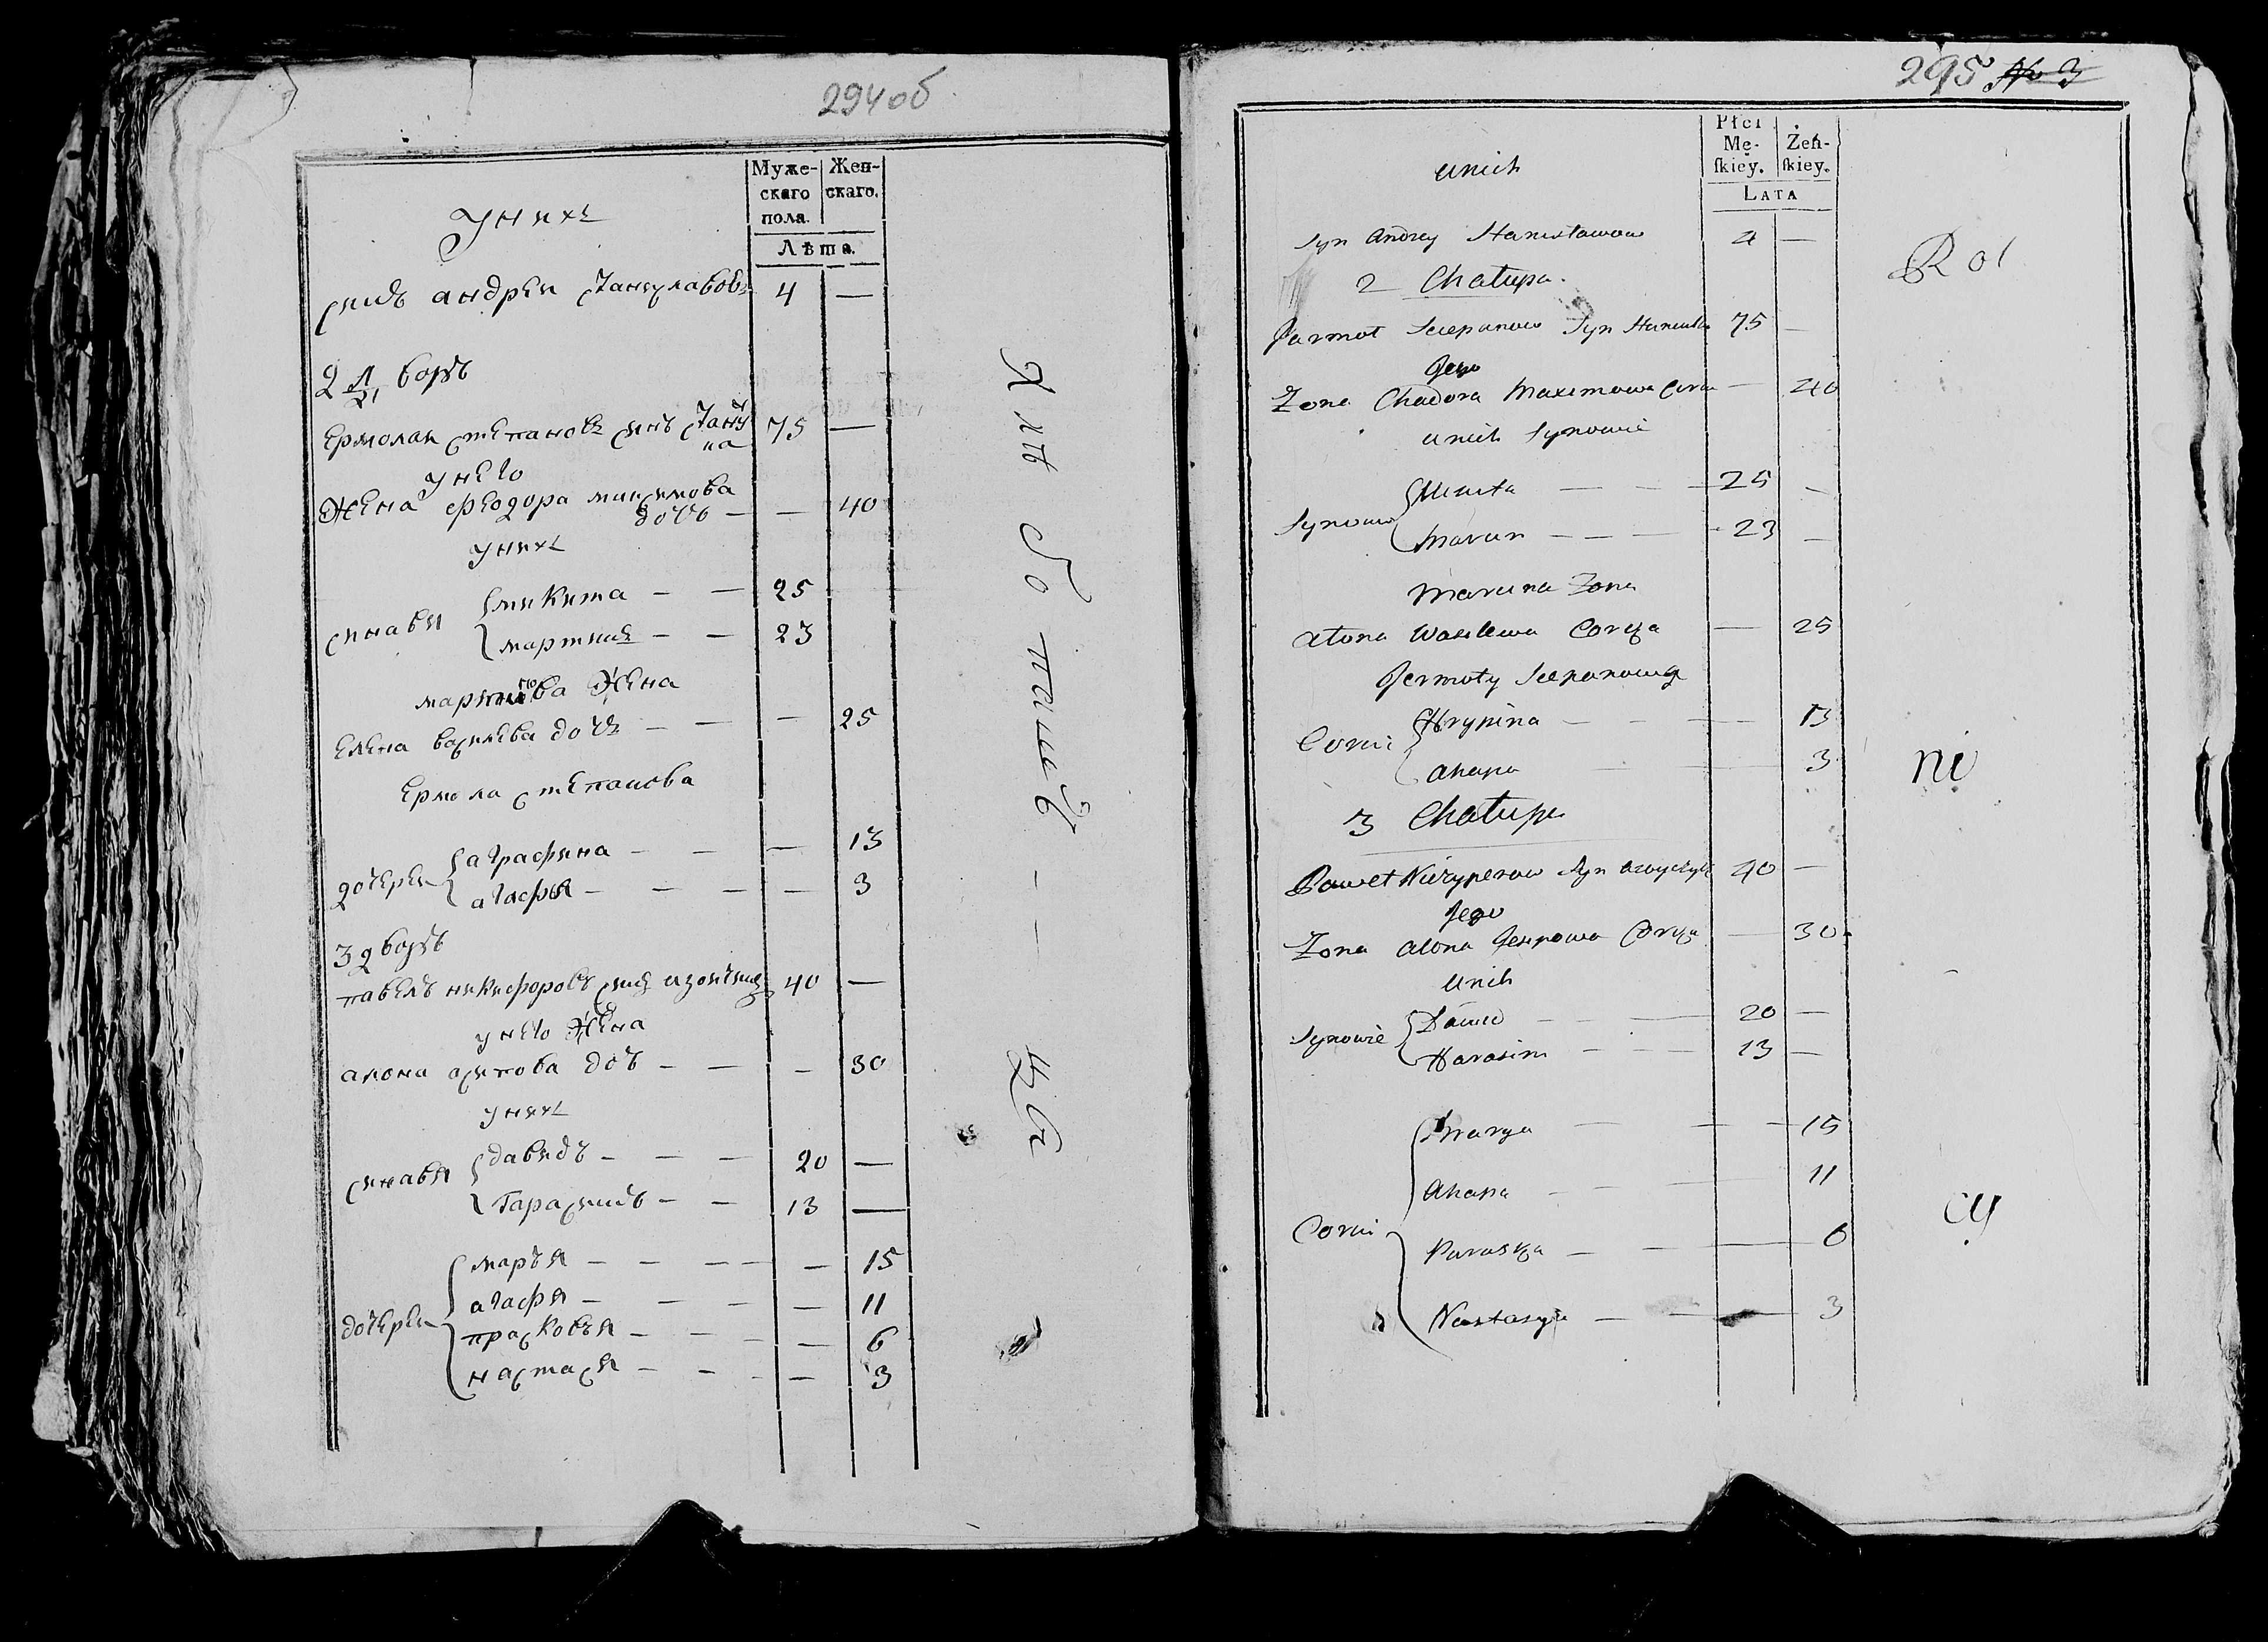 294об
Муже-
скаго
пола.
Жен-
скаго.
Лѣта.
унихъ
сынъ андреи станиславовъ 4 —
2 дворъ
Ермолаи степановъ сынъ 75 —
унего
жена феодора максимова
дочъ — — 40
унихъ
сынавья
микита — — 25
мартинъ — — 23
мартинова жена
елена василева дочъ — — — 25
Ермола степанова
дочереи
аграфина — — — 13
агафья — — — — 3
3 дворъ
павелъ никифоровъ сынъ 40 —
унего жена
алона асипова доч — — — 30
унихъ
сынавья
давидъ — — — 20 —
гарасимъ — — 13 —
дочереи
маръя — — — — — 15
агафя — — — — 11
прасковъя — — — — 6
настася — — — — 3
Хлѣбопашец
295 № 3
Płci
Mę-
ſkiey.
Żeń-
ſkiey.
LATA
unich
Syn Andrey Stanisławow 4 —
2 Chałupa.
Jarmoł Sciepanow Syn 75 —
Jego
Zona Chadora Maximowa — 40
unich Synowie
Synowie
Mikita — — — 25 —
Marcin — — — 23 —
Marcina Zona
Alona Wasilewa Corka — 25
Jermoły Sciepanowa
Corki
Hrypina — — — 13
Ahapa — — 3
3 Chałupa
Paweł Niczyperow Syn 40 —
Jego
Zona Alona Jesipowa Corka — 30
Unich
Synowie
Dawid — — — 20 —
Harasim — — — 13 —
Corki
Marya — — — 15
Ahapa — — — 11
Paraska — — — 6
Nastasya — — — 3
Rol
ni
cy